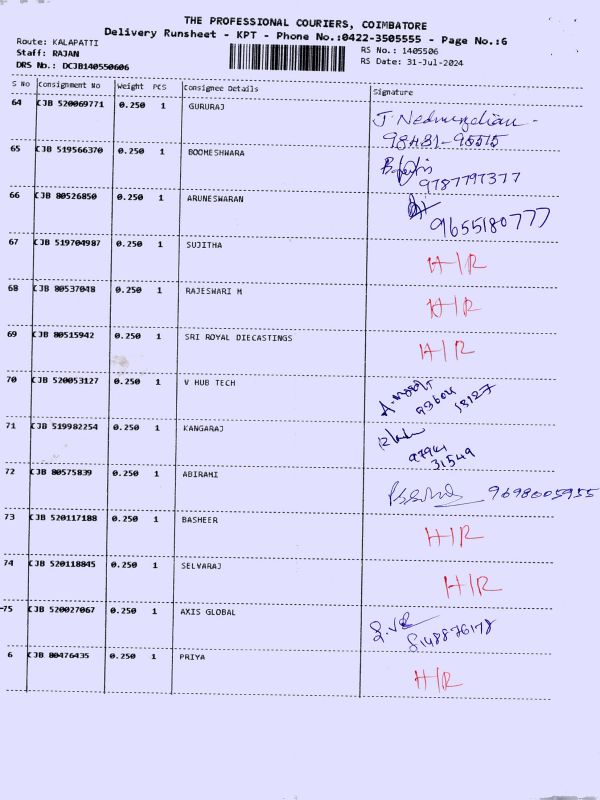 THE PROFESSIONAL COURIERS, COIMBATORE
Delivery Runsheet - KPT - Phone No.:0422-3505555 - Page No.:6
Route: KALAPATTI
Staff: RAJAN
DRS No.: DCJB140550606
RS No.: 1405506
RS Date: 31-Jul-2024
S No Consignment No Weight PCS Consignee Details Signature
64 CJB 520069771 0.250 1 GURURAJ
98431-95515
65 CJB 519566370 0.250 1 BOOMESHWARA
9787797377
66 CJB 80526850 0.250 1 ARUNESWARAN 9655180777
67 CJB 519704987 0.250 1 SUJITHA H/R
68 CJB 80537048 0.250 1 RAJESWARI M H/R
69 CJB 80515942 0.250 1 SRI ROYAL DIECASTINGS H/R
70 CJB 520053127 0.250 1 V HUB TECH
71 CJB 519982254 0.250 1 KANGARAJ
31549
72 CJB 80575839 0.250 1 ABIRAMI 9698005955
73 CJB 520117188 0.250 1 BASHEER H/R
74 CJB 520118845 0.250 1 SELVARAJ H/R
75 CJB 520027067 0.250 1 AXIS GLOBAL
8148876178
6 CJB 80476435 0.250 1 PRIYA H/R